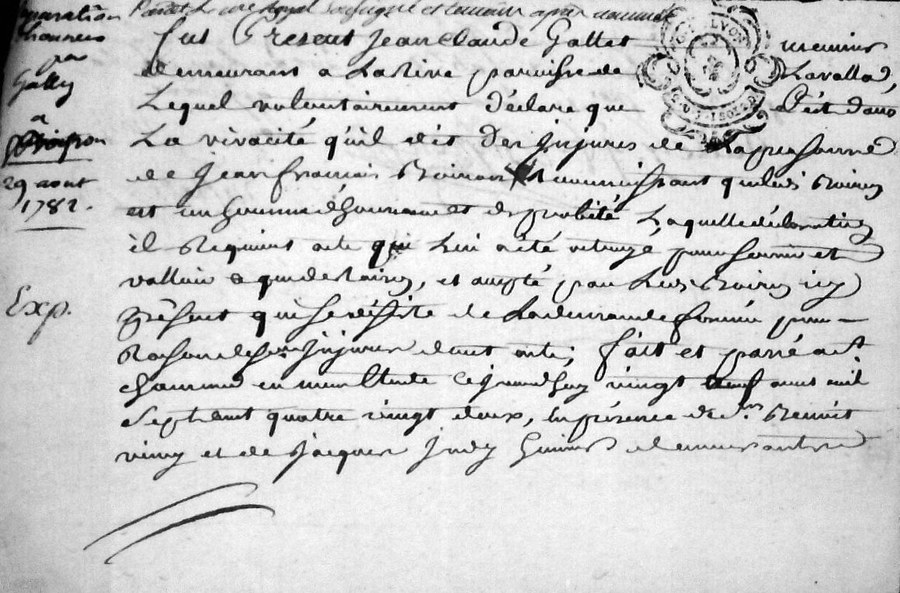 Reparation
d'honneur
par
Gallet
a
Poiron
29 aout
1782.
Exp.
Pardevant le no.re Royal soussigné et temoins apres nommés
fut Present Jean Claude Gallet meunier
demeurant a La Rive paroisse de Lavalla,
Lequel volontairement declare que C'est dans
La vivacité qu'il dit Des Injures de La personne
de Jean francois Poiron reconnoissant que led. Poiron
est un homme d'honneur et de probité, Laquelle déclaration
il Requiert acte qui Lui a été octroyé pour servir et
valloir a que de Raison, et accepté par Led. Poiron icy
Présent qui se désiste de La demande formée pour
Raison desd. Injures dont acte; fait et passé a St
Chamond en mon Etude Ce jourd'huy vingt neuf aout mil
Sept Cent quatre vingt deux, en présence de Sr. Benoit
et de Jacques demeurants
LYON